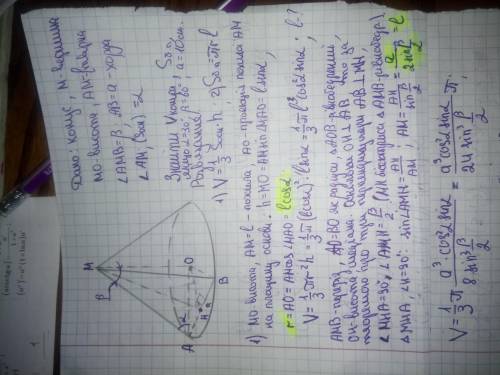 Дано: конус, M-вершина
MO-висота, AM-твірна
∠AMB=β, AB=a-хорда
∠AM, (Sосн)=α
Знайти Vконуса, Sосн,
якщо α=30°, β=60°, a=10см.
1) V=1/3 Sосн·h, 2) Sосн=πrl
1) MO-висота, AM=l - похила, AO-проекція похилої AM
на площину основи. h=MO=AM sin∠MAO=l sinα,
r=AO=AM cos∠MAO=l cosα
V=1/3 πr²h=1/3 π(l cosα)²·l sinα=1/3 πl³cos²α sinα; l-?
AO=BO як радіуси, ΔAOB-рівнобедрений
OH-висота і медіана. Оскільки OH⊥AB, то за
теоремою про три перпендикуляри AB⊥MH
∠MHA=90°, ∠AMH=β/2 (MH бісектриса ∠AMB, ΔAMB-рівнобедр.)
ΔMHA, ∠H=90°. sin∠AMH=AH/AM; AM=AH/sin β/2=a/2sin β/2=l
V=1/3 π a³·cos²α sinα/8 sin³ β/2=a³cos²α sinα/24 sin³ β/2 π.
M
β
A
α
H
O
B